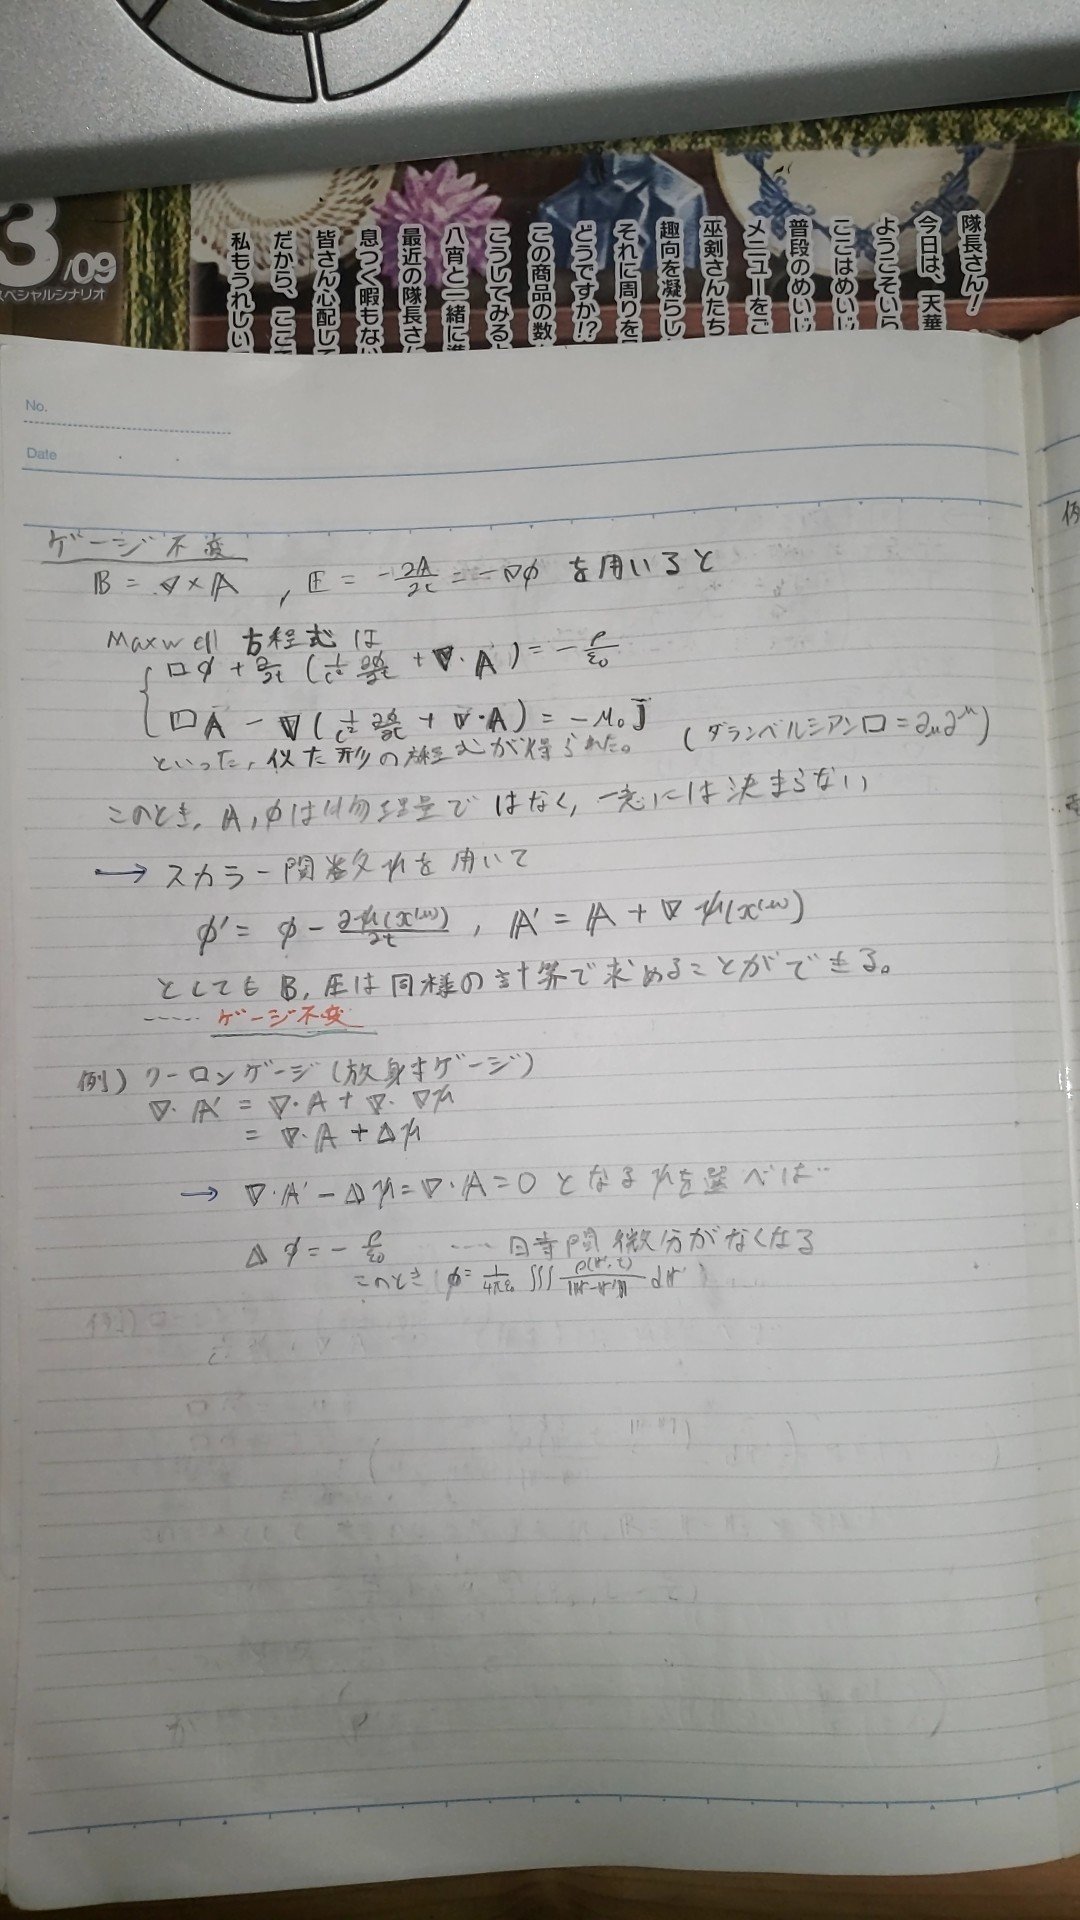 3/09
スペシャルシナリオ
隊長さん!
今日は、天華
ようこそいら
ここはめいじ
普段のめいじ
メニューをご
巫剣さんたち
趣向を凝らし
それに周りを
どうですか!?
この商品の数
こうしてみると
八宵と一緒に
最近の隊長さん
息つく暇もない
皆さん心配して
だから、ここで
私もうれしい
No.
Date
ゲージ不変
B = ∇×A , E = -∂A/∂t = -∇φ を用いると
Maxwell 方程式は
□φ + ∂/∂t (1/c² ∂φ/∂t + ∇・A) = -ρ/ε₀
□A - ∇(1/c² ∂φ/∂t + ∇・A) = -μ₀j
といった,似た形の方程式が得られた。 (ダランベルシアン□=∂μ∂^μ)
このとき, A, φは物理量ではなく, 一意には決まらない
→ スカラー関数ψを用いて
φ' = φ - ∂ψ(x^(μ))/∂t , A' = A + ∇ψ(x^(μ))
としても B, Eは同様の計算で求めることができる。
…… ゲージ不変
例) クーロンゲージ(放射ゲージ)
∇・A' = ∇・A + ∇・∇ψ
= ∇・A + Δψ
→ ∇・A' - Δψ = ∇・A = 0 となるψを選べば…
Δφ = -ρ/ε₀ …… 時間微分がなくなる
このとき (φ = 1/4πε₀ ∫∫∫ ρ(r', t)/|r-r'| dr')
例